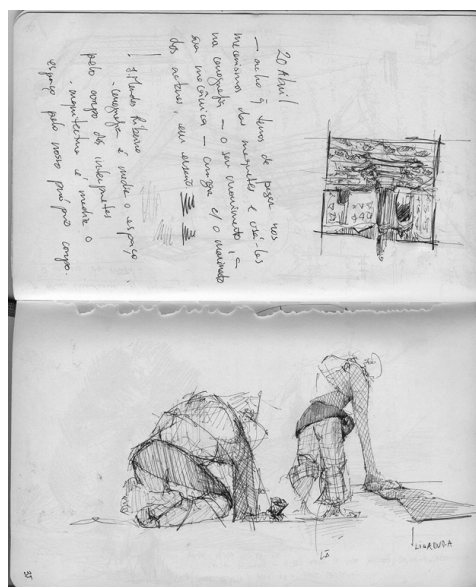 20 Abril
— acho q̃ temos de pegar nos
mecanismos das maquetes e usá-los
na cenografia — o seu movimento, a
sua mecânica — c/ o movimento
dos actores, em
! J. Mendes Ribeiro
- cenografia é medir o espaço
pelo corpo dos intérpretes
- arquitectura é medir o
espaço pelo nosso próprio corpo.
LIGADURA
35